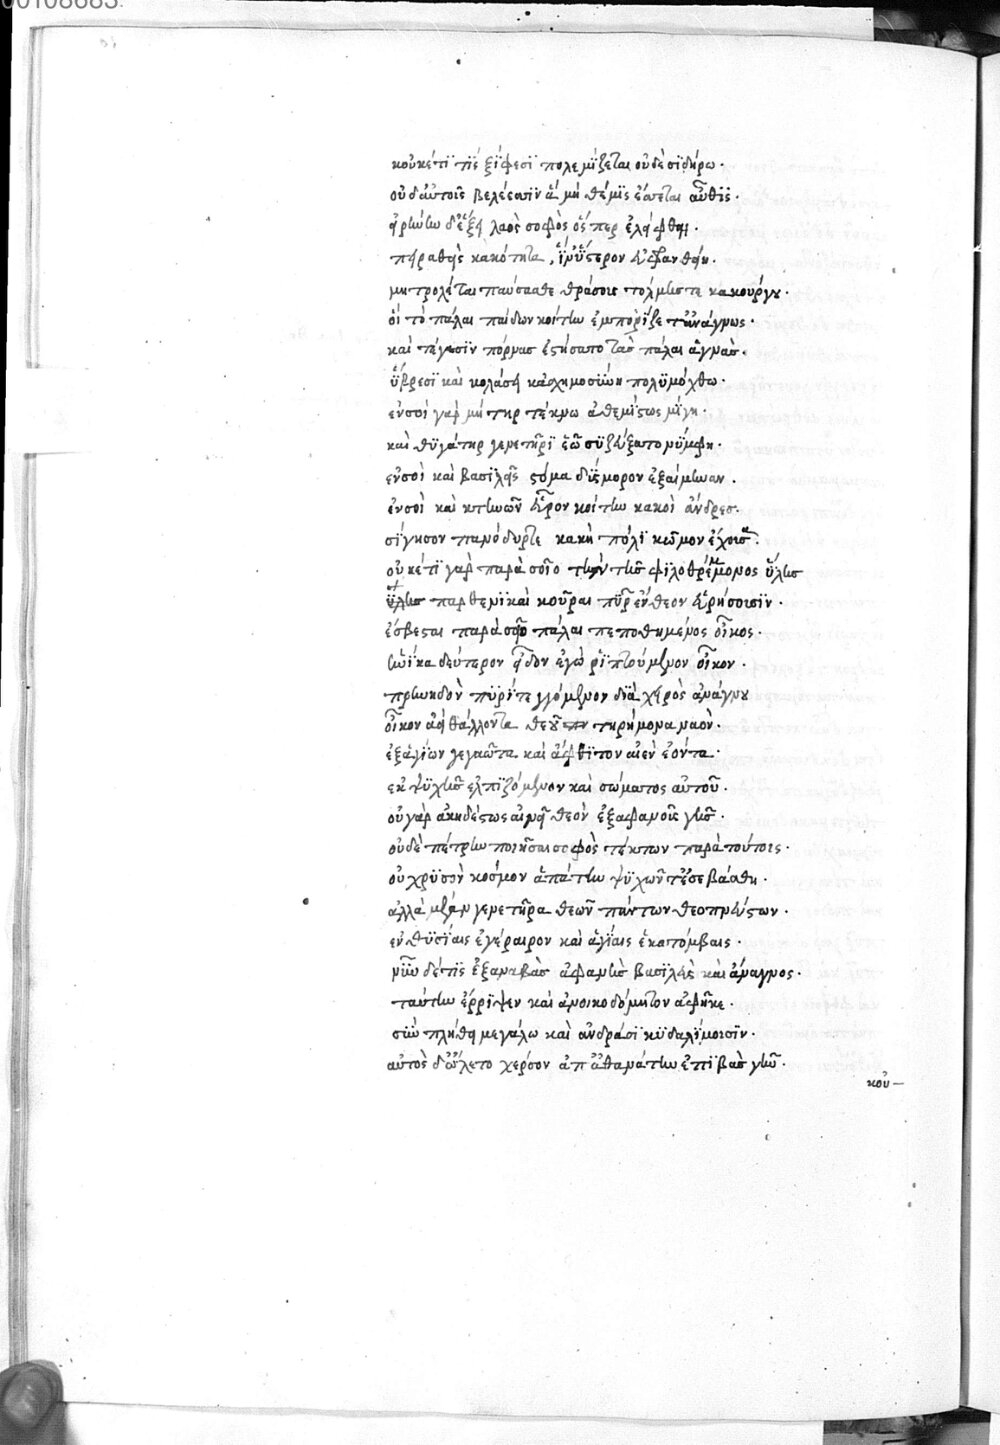 00108683
κοὐκέτι τίς ξίφεσι πολεμίζεται οὐδὲ σιδήρω·
οὐδ' αὐτοῖς βελέεσσιν ἃ μὴ θέμις ἔσσεται αὖθις·
εἰρήνην δ' ἕξει λαὸς σοφὸς ὅς περ ἐλείφθη·
πειραθεὶς κακότητα, ἵν' ὕστερον εὐφρανθείη·
μητρολέται παύσασθε θράσους τόλμης τε κακούργου·
οἳ τὸ πάλαι παίδων κοίτην ἐμπορίζετ' ἀνάγνως·
καὶ τέγεσιν πόρνας ἐστήσατο τὰς πάλαι ἁγνὰς·
ὕβρεσι καὶ κολάσει κἀσχημοσύνη πολυμόχθω·
ἐν σοὶ γὰρ μήτηρ τέκνω ἀθεμίστως μίγη·
καὶ θυγάτηρ γενετῆρι ἑῶ συζεύξατο νύμφη·
ἐν σοὶ καὶ βασιλῆς στόμα δύσμορον ἐξεμίηναν·
ἐν σοὶ καὶ κτηνῶν εὗρον κοίτην κακοὶ ἄνδρες·
σίγησον πανόδυρτε κακὴ πόλι κῶμον ἔχουσα·
οὐκέτι γὰρ παρὰ σοῖο τὴν τῆς φιλοθρέμμονος ὕλης
παρθενικαὶ κοῦραι πῦρ ἔνθεον εὑρήσουσιν·
ἔσβεσται παρὰ σοῖο πάλαι πεποθημένος οἶκος·
ἡνίκα δεύτερον εἶδον ἐγὼ ῥιπτούμενον οἶκον·
πρηνηδὸν πυρὶ τεγγόμενον διὰ χειρὸς ἀνάγνου
οἶκον ἀεὶ θάλλοντα θεοῦ τηρήμονα ναὸν·
ἐξ ἁγίων γεγαῶτα καὶ ἄφθιτον αἰὲν ἐόντα·
ἐκ ψυχῆς ἐλπιζόμενον καὶ σώματος αὐτοῦ·
οὐ γὰρ ἀκηδέστως αἰνεῖ θεὸν ἐξ ἀφανοῦς γῆς·
οὐδὲ πέτρην ποιῆσαι σοφὸς τέκτων παρὰ τούτοις·
οὐ χρυσὸν κόσμον ἀπάτην ψυχῶν τ' ἐσεβάσθη·
ἀλλὰ μέγαν γενετῆρα θεῶν πάντων θεοπνεύστων·
ἐν θυσίαις ἐγέραιρον καὶ ἁγίαις ἑκατόμβαις·
νῦν δέ τις ἐξαναβὰς ἀφανὴς βασιλεὺς καὶ ἄναγνος·
ταύτην ἔρριψεν καὶ ἀνοικοδόμητον ἀφῆκε·
σὺν πλήθει μεγάλω καὶ ἀνδράσι κυδαλίμοισιν·
αὐτὸς δ' ὤλετο χέρσον ἀπ' ἀθανάτην ἐπιβὰς γῆν·
κοὐ—